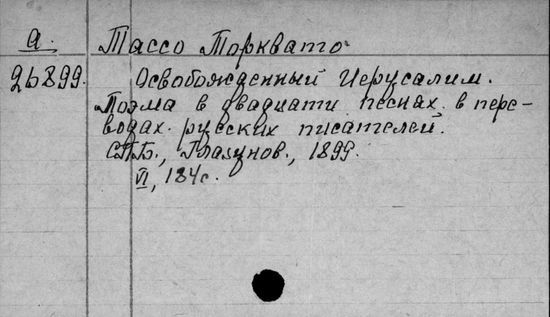 а. Тассо Торквато
26899. Освобожденный Иерусалим.
Поэма в двадцати песнах. в пере-
водах. русских писателей.
СПБ., Глазунов., 1899.
VI, 184с.